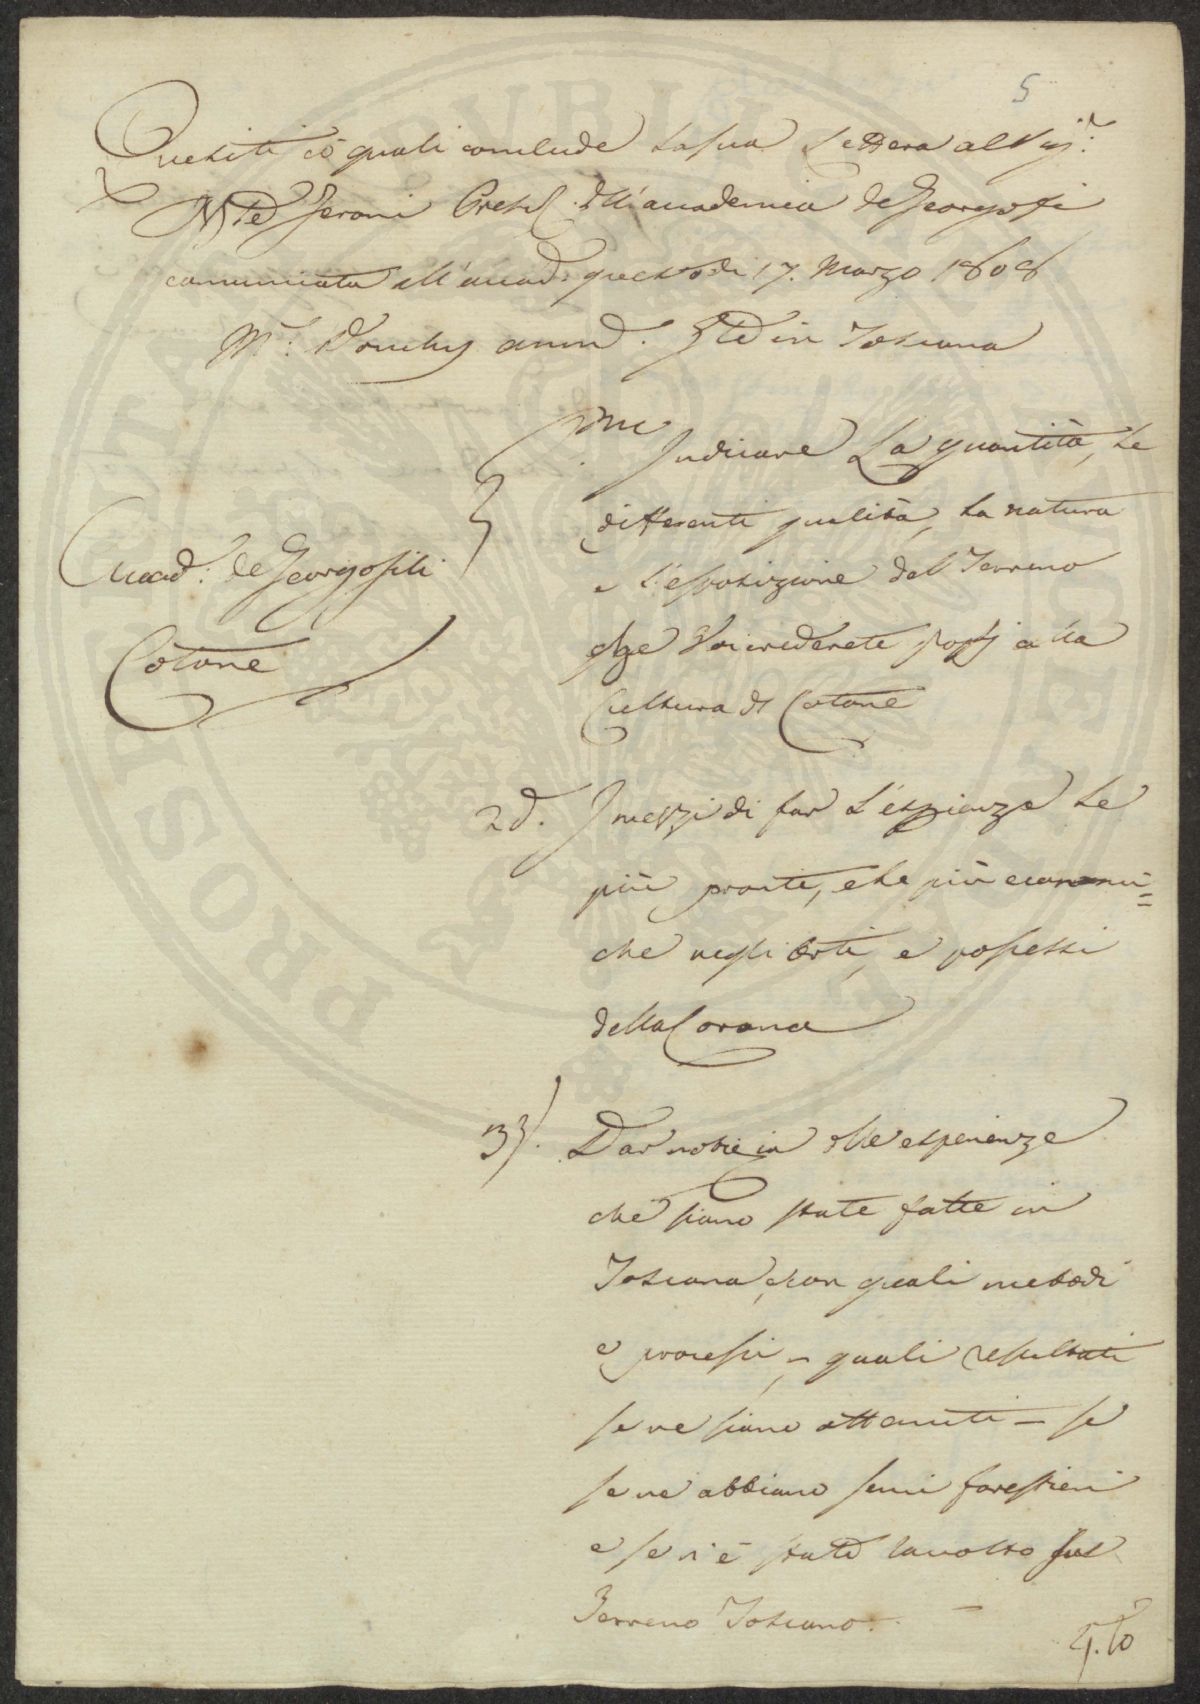 5
Quesiti co' quali conclude la sua Lettera al Sigr.
Ferroni Presid. dell'accademia de Georgofi
comunicata all'accad. questo dì 17. Marzo 1808
Mr. Dauchy amm. in Toscana
Indicare La quantità, Le
differenti qualità, la natura
e l'esposizione del Terreno
che Voi crederete proprj alla
Cultura di Cotone
Accad. de Georgofili
Cotone
2o. I mezzi di far L'esperienze Le
più pronte, e le più economi=
che negli orti, e possessi
della Corona
3). Dar notizia delle esperienze
che siano state fatte in
Toscana, con quali metodi
e processi, quali resultati
se ne siano ottenuti — se
se ne abbiano semi forestieri
e se n'è stato raccolto sul
Terreno Toscano. —
4.to
PROSPERITATI PUBLICAE AUGENDAE